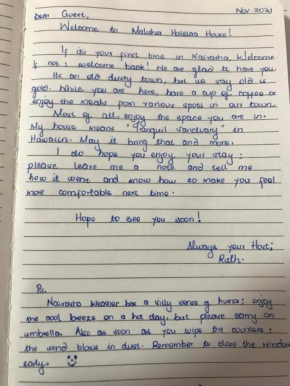 Dear Guest,
Nov 2021
Welcome to Maluhia Holeloa House!
If it's your first time in Naivasha, Welcome
If not; welcome back! We are glad to have you.
Its an old dusty town, but we say old is
gold. While you are here, have a cup of coffee or
enjoy the meals from various spots in our town.
Most of all, enjoy the space you are in.
My house means "Tranquil Sanctuary" in
Hawaiian. May it bring that and more.
I do hope you enjoy your stay;
please leave me a note and tell me
how it went and know how to make you feel
more comfortable next time.
Hope to see you soon!
Always your Host,
Ruth.
Ps.
Naivasha Weather has a silly sense of humor; enjoy
the cool breeze on a hot day, but please carry an
umbrella. Also as soon as you wipe the counters;
the wind blows in dust. Remember to close the window
early.